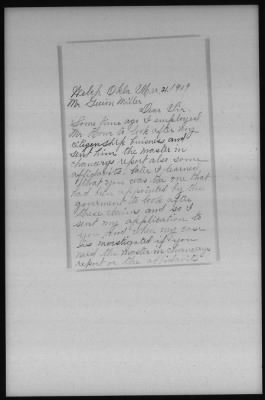 Welch, Okla Mar. 21, 1909
Mr. Guion Miller
Dear Sir.
Some time ago I employed
Mr. to look after my
citizenship buisness and
sent him the master in
chancerys report also some
affidavits. later I learned
that you was the one that
had been appointed by the
goverment to look after
these claims and so I
sent my application to
you. And when my case
is investigated if you
need the master in chancerys
report or the affidavits